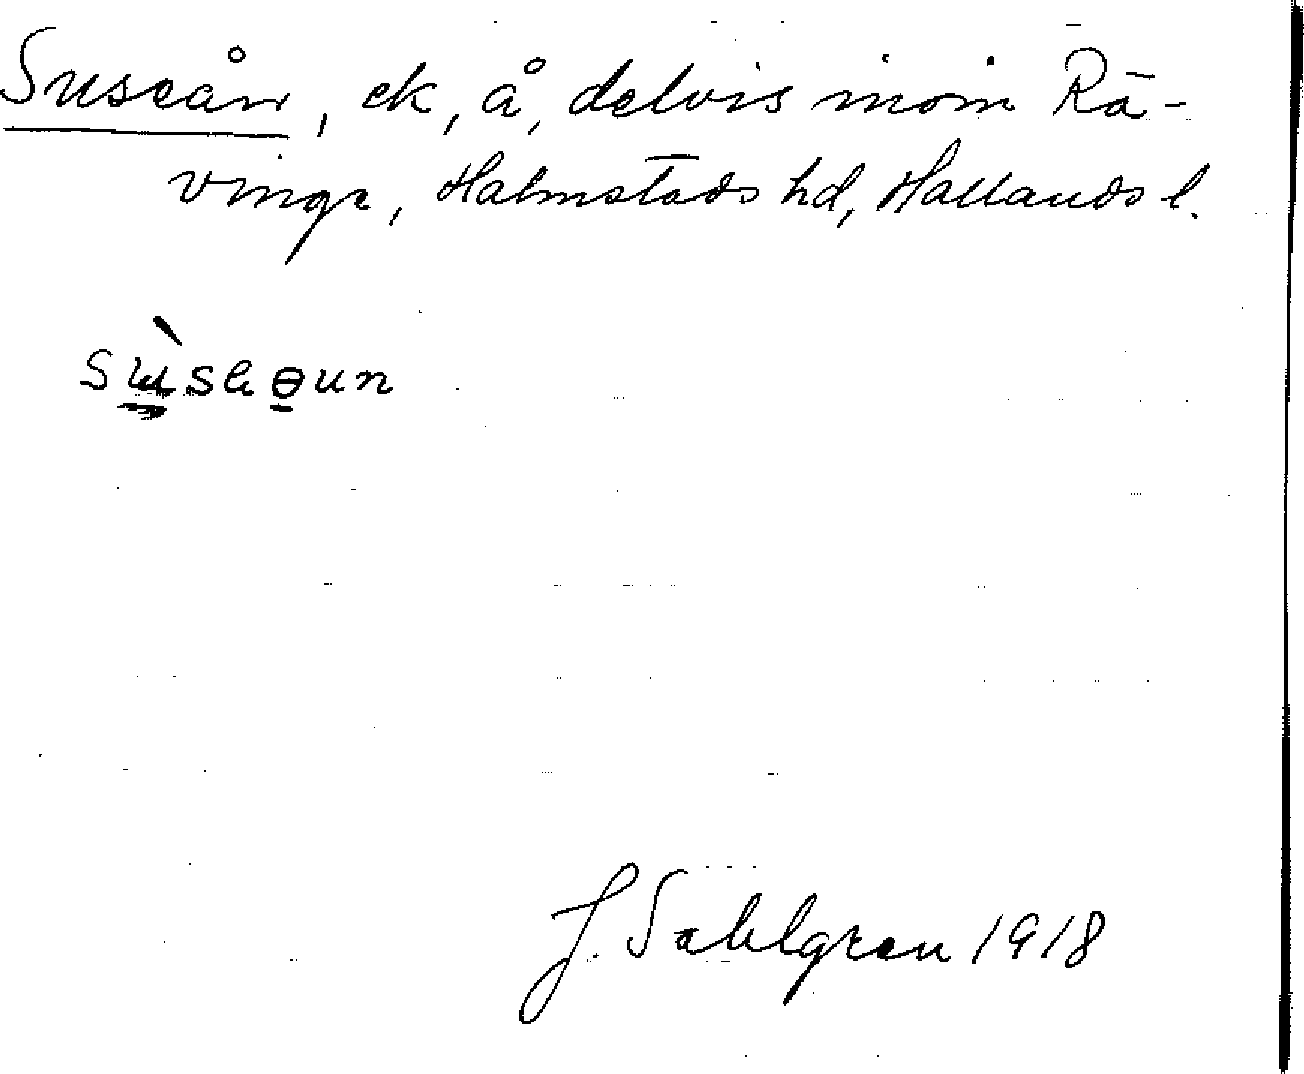 Suseån, ek, å, delvis inom Rä-
vinge, Halmstads hd, Hallands l.
J. Sahlgren 1918